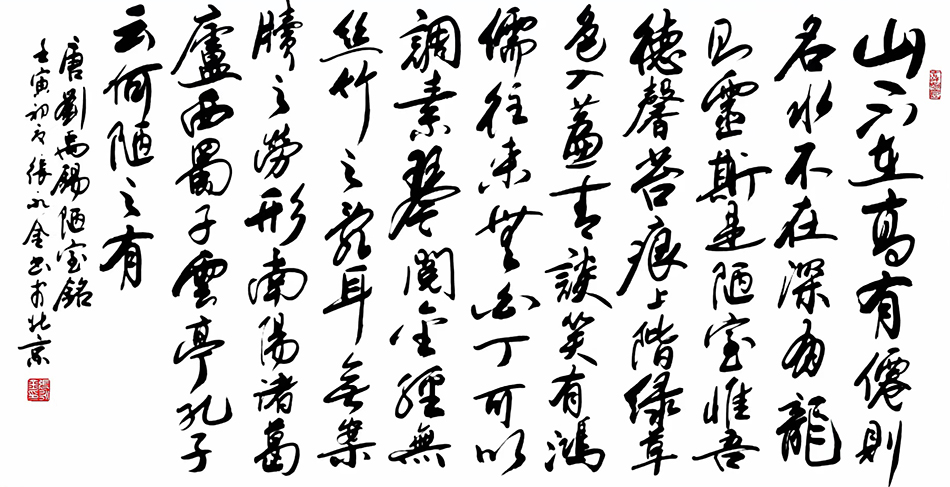 山不在高有僊則
名水不在深有龍
則靈斯是陋室惟吾
德馨苔痕上階緑草
色入簾青談笑有鴻
儒往来無白丁可以
調素琴閱金經無
絲竹之亂耳無案
牘之勞形南陽諸葛
廬西蜀子雲亭孔子
云何陋之有
唐劉禹錫陋室銘
壬寅初冬張永金书於北京